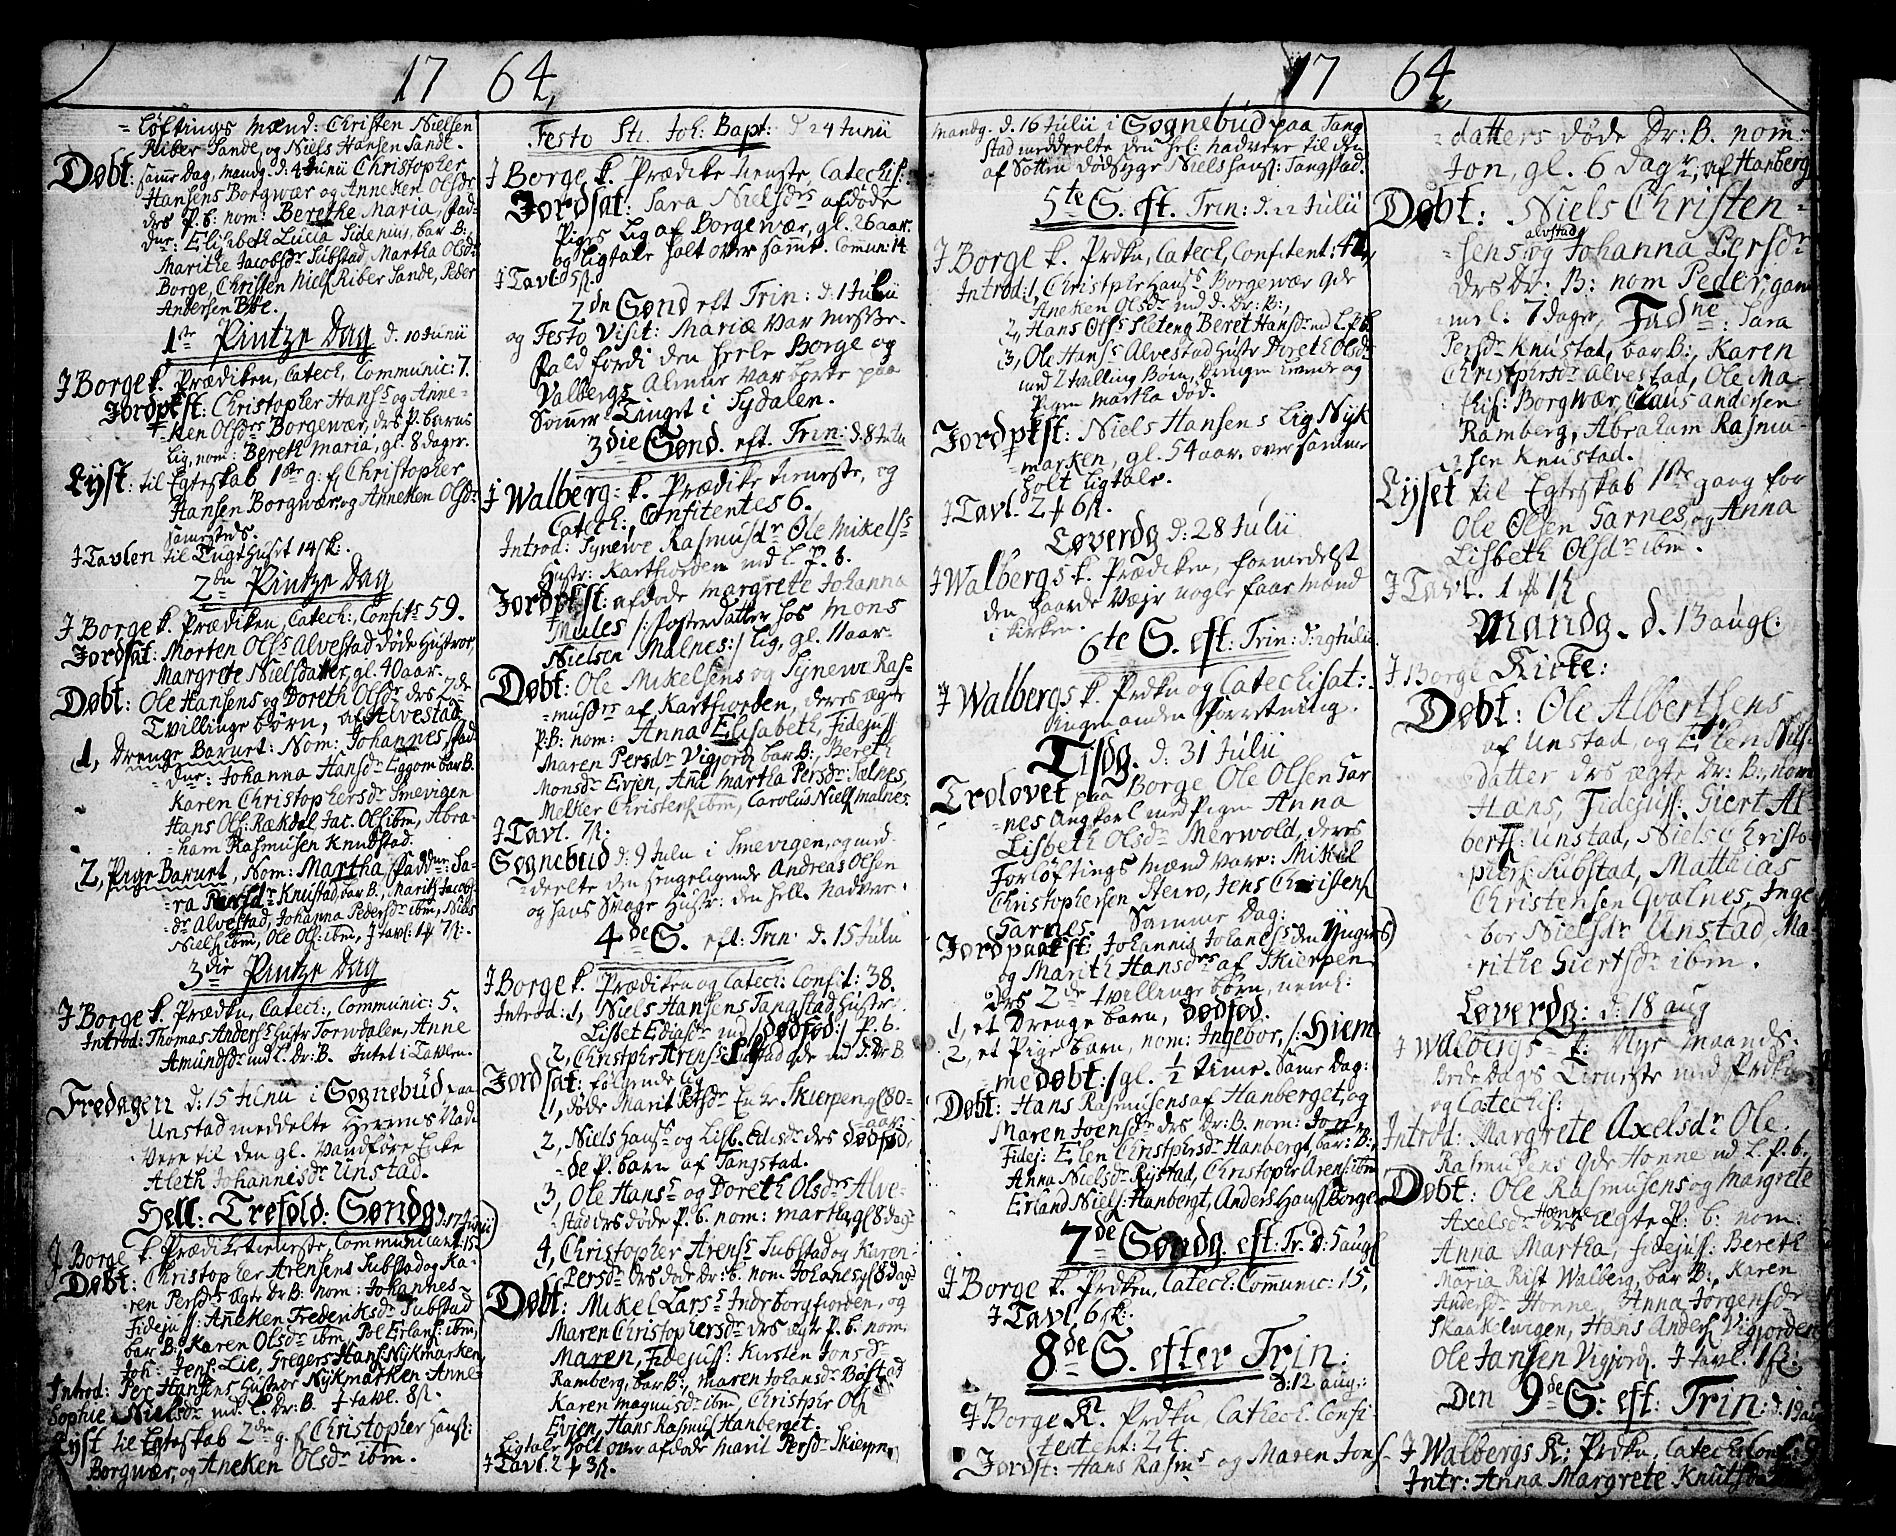 17 64,
= løftings Mænd: Christen Nielsen
Riber Sande, og Niels Hansen Sande.
Døbt: samme Dag, mandg. d. 4 Junii Christopher
Hansens Borgwær og Anneken Olsdr
drs P. b. nom: Berethe Maria, fad-
dne: Elisbeth Lucia Sidenius, bar B:
Marithe Jacobsdr Substad, Martha Olsdr
Borge, Christen Niels Riber Sande, Peder
Andersen Bøe.
1ste Pintze Dag d. 10 Junii
J Borge k. Prædiken, Catech, Communic: 7.
Jordpkst: Christopher Hanss og Anne-
ken Olsdrs Borgewær, drs P. barns
Lig, nom: Bereth Maria, gl. 8 dager.
Lyst: til Egteskab 1ste g: f Christopher
Hansen Borgwær, og Anneken Olsdr
sammesteds.
J Tavlen til Tugthuset 14 sk:
2den Pintze Dag
J Borge k. Prædiken, Catech:, Confits 59.
Jordsat: Morten Olss Alvestad døde Hustroe,
Margrete Nielsdatter, gl. 40 aar.
Døbt: Ole Hansens og Doreth Olsdr des 2de
Tvillinge børn, af Alvestad
1, Drenge Barnet: Nom: Johannes, fad
dne: Johanna Hansdr Eggom bar B.
Karen Christophersdr Smevigen
Hans Ols: Rækdal Jac. Ols ibm, Abra-
ham Rasmusen Knudstad.
2, Pige Barnet, Nom: Martha, fadder: Sa-
ra Persdr Knustad, bar B., Marith Jacobs-
dr Alvestad, Johanna Pedersdr ibm, Niels
Niels ibm, Ole Ols: ibm, J tavl: 1 # 7 sk:.
3die Pintze Dag
J Borge k. Prædkn, Catech:, Communic: 5.
Introd: Thomas Anders: Hustr Torvdalen, Anne
Amundsdr med l. Dr: B. Intet i Tavlen.
Fredagen d. 15 Junii i Sognebud, paa
Unstad meddelte Herrens Nad-
vere til den gl. Vandføre Enke
Aleth Johannesdr Unstad.
Hell: Trefold: Søndg d. 17 Junii
J Borge k. Prædiketieneste Communicant: 15
Døbt: Christopher Arensens Substad og Ka-
ren Persdrs ægte Dr B: nom: Johannes
Fidejuss: Anneken Frederiksdr Substad
bar B:, Karen Olsdr ibm, Poel Erlans: ibm,
Joh: Jens: Lie, Gregers Hans Nykmarken
Introd: Per Hansens Hustroe Nykmarken Anne
Sophie Nielsdr. md. l. Dr: B. J tavl. 8 sk.
Lyst til Egteskab 2den g. f Christopher Hans:
Borgwær, og Aneken Olsdr ibm.
Festo Sti Joh: Bapt: d 24 Junii
J Borge k. Prædike tieneste, Catechis:
Jordsat: Sara Nielsdrs afdøde
Piges Lig af Borgewær, gl. 26 aar.
og Ligtale holt over samme. Comuni: 14
J Tavl: 5 sk.
2den Sønd eft Trin: d. 1 Julii
og Festo Visit: Mariæ var Messe-
fald fordi den heele Borge og
Valbergs Almue var borte paa
Sommer Tinget i Sydalen.
3die Sønd. eft. Trin: d. 8 Julii
J Walberg: k. Prædike tieneste, og
Catech: Confitentes 6.
Introd: Synewe Rasmusdr Ole Mikelss
Hustr: Kartfiorden md L. P. b.
Jordpkst: afdøde Margrete Johanna
Mules /: fosterdatter hos Mons
Nielsen Malnes :/ Lig, gl. 11 aar.
Døbt: Ole Mikelsens og Synewe Ras-
musdrs af Kartfiorden, deres ægte
P: B: nom: Anna Elisabeth, Fidejuss
Maren Persdr Vigjord, bar B:, Bereth
Monsdr Evjen, Ana Martha Persdr Salnes,
Melker Christens ibm, Carolus Niels Malnes.
J Tavl. 7 sk.
Sognebud d: 9 Julii i Smevigen, og med-
deelte den sengeligende Andreas Olsen
og hans Svage Hustr: den hell. Nadvere.
4de S. eft: Trin d. 15 Julii
J Borge k. Prædiken og Catech: Confit: 38.
Introd: 1, Niels Hansens Tangstad Hustr:
Lisbet Ediasdr md /: dødfød :/ P. b.
2, Christphr Arens: Substad Qde md d. Dr B
Jordsat: følgende Lig
1, døde Marit Persdr Enke Skierpen gl 80-
aar.
2, Niels Hans: og Lisb. Edisdr drs dødfød-
de P. barn af Tangstad.
3, Ole Hanss og Doreth Olsdrs Alve-
stad drs døde P. b. nom: Martha, gl 8 dage
4, Christopher Arens: Substad og Karen-
Persdr drs døde Dr: b. nom Johanes gl 8 dag
Døbt: Mikel Larss Inderborgfiorden, og
Maren Christophersdr drs ægte P. b. nom.
Maren, Fidejuss: Kirsten Jonsdr
Ramberg, bar B:, Maren Johansdr Bøstad
Karen Magnusdr ibm, Christphr Ols
Evjen, Hans Rasmus Hanberget.
Ligtale holt over afdøde Marit Persdr Skierpn
J Tavl. 2 # 3 sk.
17 64,
Mandg. d. 16 Julii i Søgnebud paa Tang
stad meddeelte den hel: Nadvere til den
af Sotten dødsyge Niels Hans: Tangstad.
5te S. eft. Trin: d. 22 Julii
J Borge k. Prdkn, Catech, Confitent: 42,
Introd: 1, Christphr Hanss Borgewær Qde
Aneken Olsdr md d. Dr: B:,
2, Hans Olss Sleteng Beret Hansdr md L. P. b.
3, Ole Hanss Alvestad Hustr Doreth Olsdr
med 2 tvilling Børn, Drengen levende og
Pigen Martha død.
Jordpkst: Niels Hansens Lig Nyk
marken, gl. 54 aar. over samme
holt Ligtale.
J Tavl. 2 # 6 sk.
Løverdg d: 28 Julii
J Walbergs k. Prædiken, formedelst
den haarde Væhr nogle faar Mænd
i Kirken.
6te S. eft: Trin: d: 29 Julii
J Walbergs k. Prdkn og Catechisat:-
Ingen anden Forretning.
Tisdg. d. 31 Julii
Troløvet paa Borge Ole Olsen Gar
nes Angkarl med Pigen Anna
Lisbeth Olsdr Merwold, deres
Forløftings Mænd vare: Mikel
Christophersen Steiro, Jens Christens
Garnes. Samme Dag:
Jordpaakst: Johannis Johaness den Yngers
og Marith Hansdrs af Skierpen
drs 2de tvillinge børn, neml:
1, et Drenge barn, dødfød.
2, et Pige barn, nom: Ingebor, /: Hiem-
medøbt :/ gl. 1/2 time. Same Dag:
Døbt: Hans Rasmusens af Hanberget, og
Maren Joensdr drs Dr: B. nom: Jon
Fidej: Elen Christphersdr Hanbergt, bar: B:,
Anna Nielsdr Rystad, Christopher Arens: ibm
Erland Niels: Hanbergt, Anders Hans Borge
7de Søndg. eft. Tr. d: 5 augl
J Borge k. Prdkn, Catech: Comunic: 15,
J Tavl. 6 sk:
8de S. efter Trin:
d: 12 aug.:
J Borge K. Prdkn, Cathech. Confi-
tentent: 24.
Jordst: Hans Rasms og Maren Jons
datters døde Dr: B. nom:
Jon, gl. 6 Dagr, af Hanberg
Døbt: Niels Christen-
sens og alvstad Johanna Persdr
drs Dr: B: nom Peder, gam
mel: 7 dager, Fadne: Sara
Persdr Knustad, bar B:, Karen
Christphersdr Alvestad, Ole Ma-
this: Borgwær, Claus Andersen
Ramberg, Abraham Rasmu-
sen Knustad.
Lyset til Egteskab 1ste gang for
Ole Olsen Garnes, og Anna
Lisbeth Olsdr ibm.
J Tavl. 1 # 1 sk
Mandg. d. 13 augl:
J Borge Kirke:
Døbt: Ole Albertsens
af Unstad, og Elen Niels
datter drs ægte Dr: B:, nom
Hans, Fidejuss: Giert Al-
berts: Unstad, Niels Christo-
phers: Substad, Matthias
Christensen Qvalnes, Inge
bor Nielsdr Unstad Ma-
rithe Giertsdr ibm.
Løverdg: d: 18 aug
J Walbergs k: Nye Maands-
Bededags Tieneste med Prdkn
og Catechis:
Introd: Margrete Axelsdr Ole
Rasmusens Qde Honne md L. P. b.
Døbt: Ole Rasmusens og Margrete
Axelsdr Honne drs ægte P: b: nom:
Anna Martha, fidejus: Bereth
Maria Rist Walberg, bar B:, Karen
Andersdr Honne, Anna Jørgensdr
Skaakilvigen, Hans Anders Vigjorden
Ole Jansen Vigjord. J tavl. 1 sk:
Den 9de S: eft: Trin: d: 19 aug
J Walbergs K: Prdkn, Catech, Conf: 9
Intr: Anna Margrete Knuts